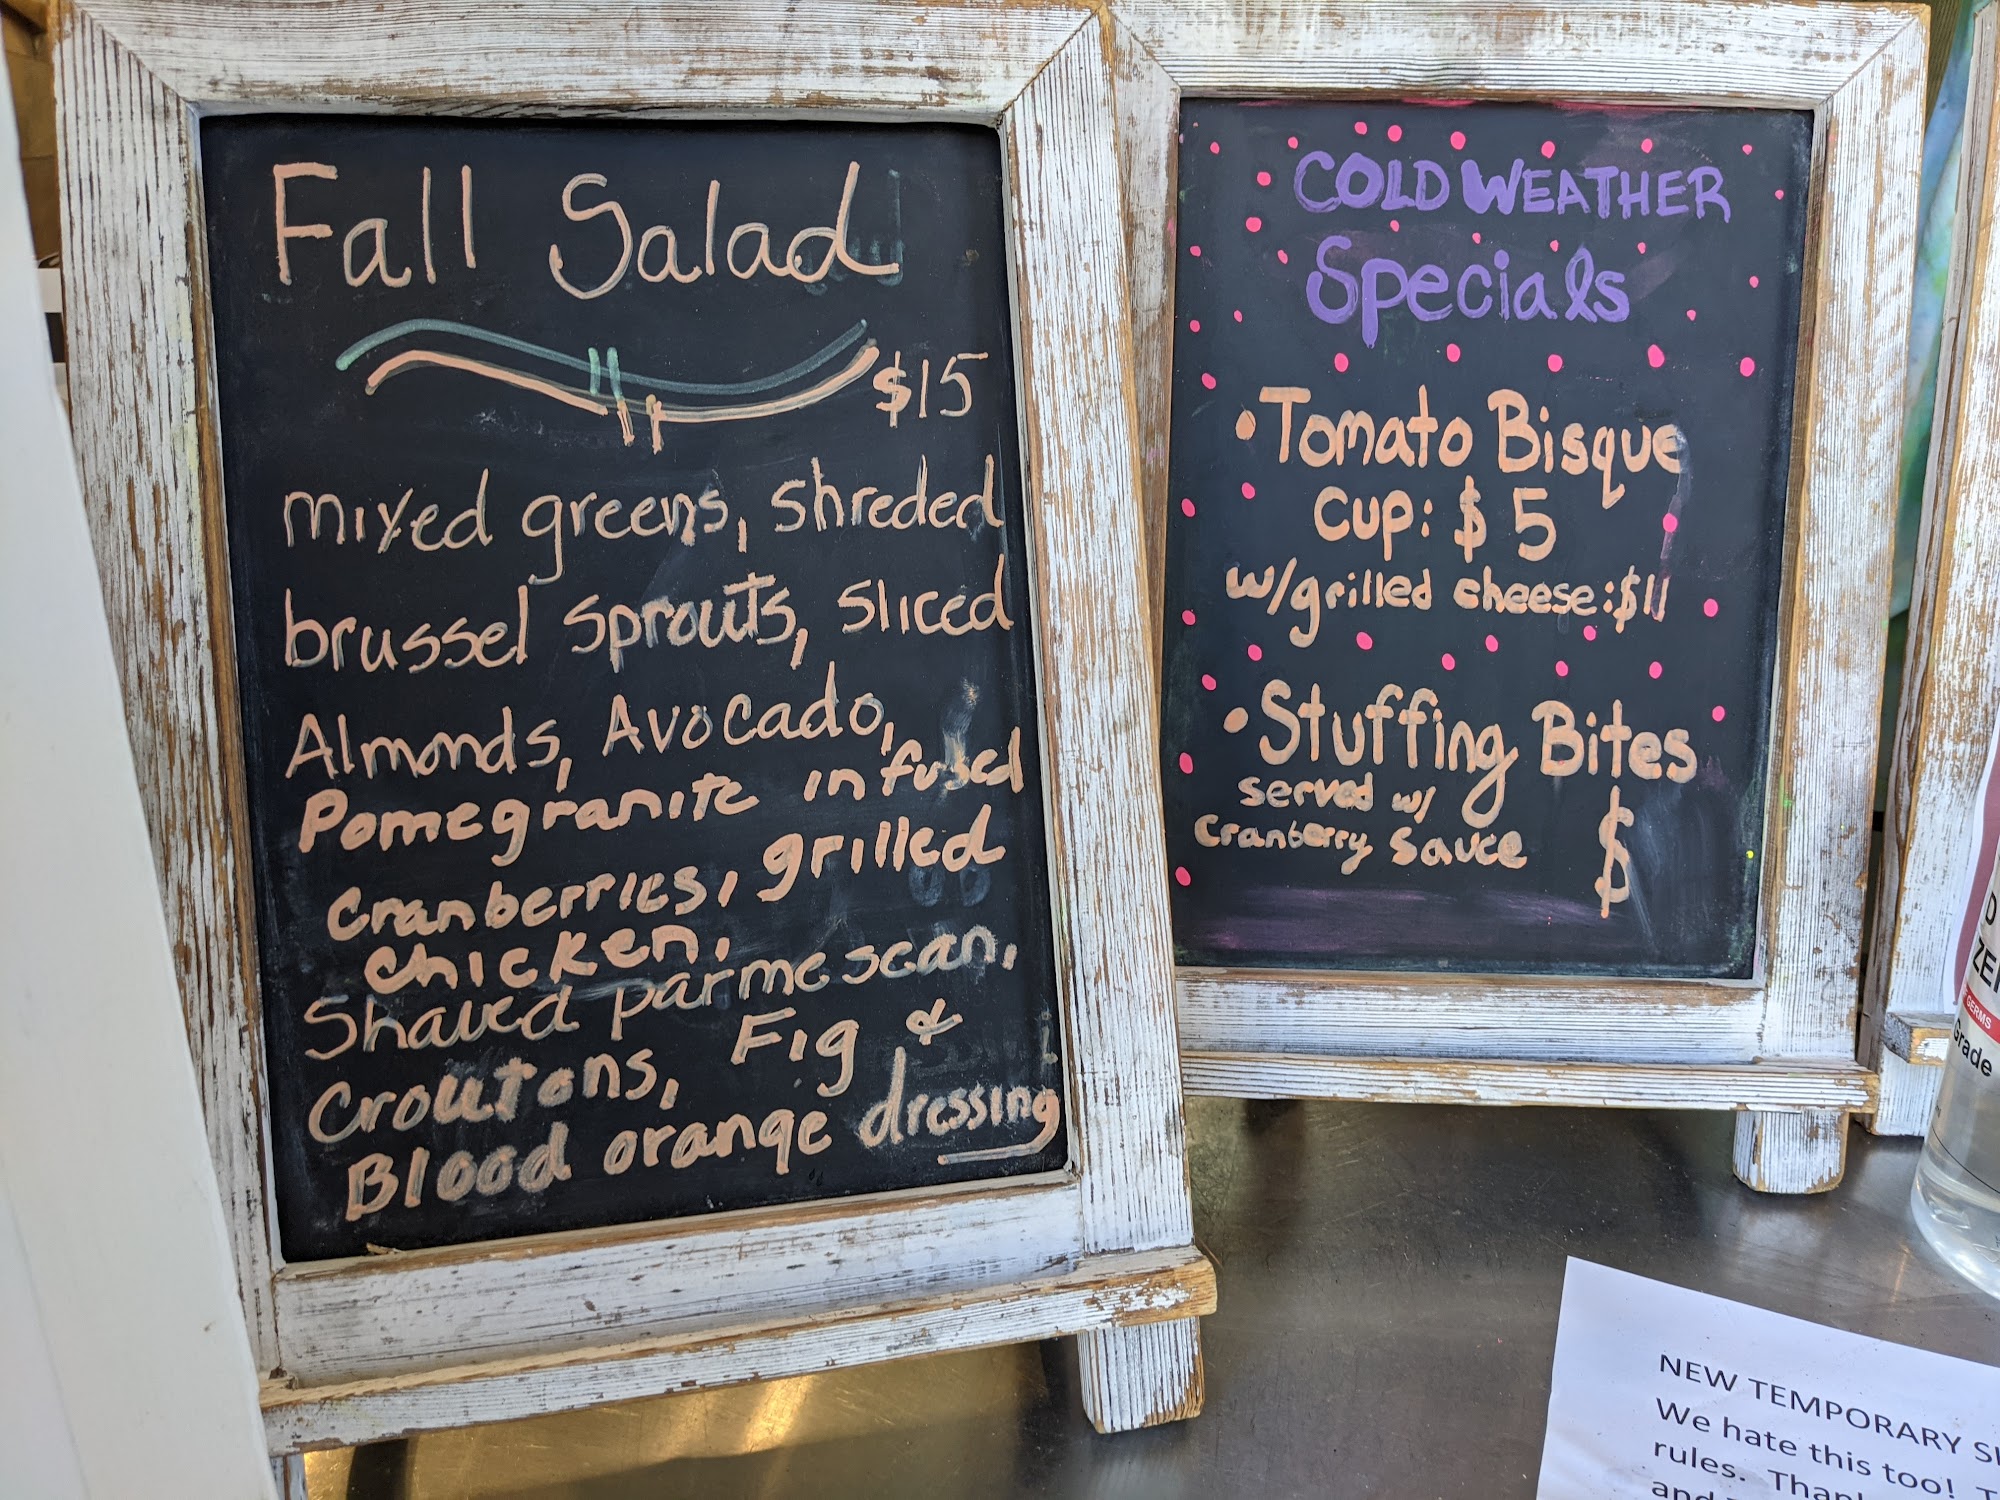 Fall Salad
$15
mixed greens, shreded
brussel sprouts, sliced
Almonds, Avocado,
Pomegranite infused
Cranberries, grilled
chicken,
Shaved parmescan,
Croutons, Fig &
Blood orange dressing
COLD WEATHER
Specials
• Tomato Bisque
Cup: $5
w/grilled cheese: $11
• Stuffing Bites
served w/
Cranberry Sauce $
GERMS
Grade
NEW TEMPORARY
We hate this too!
rules.
and